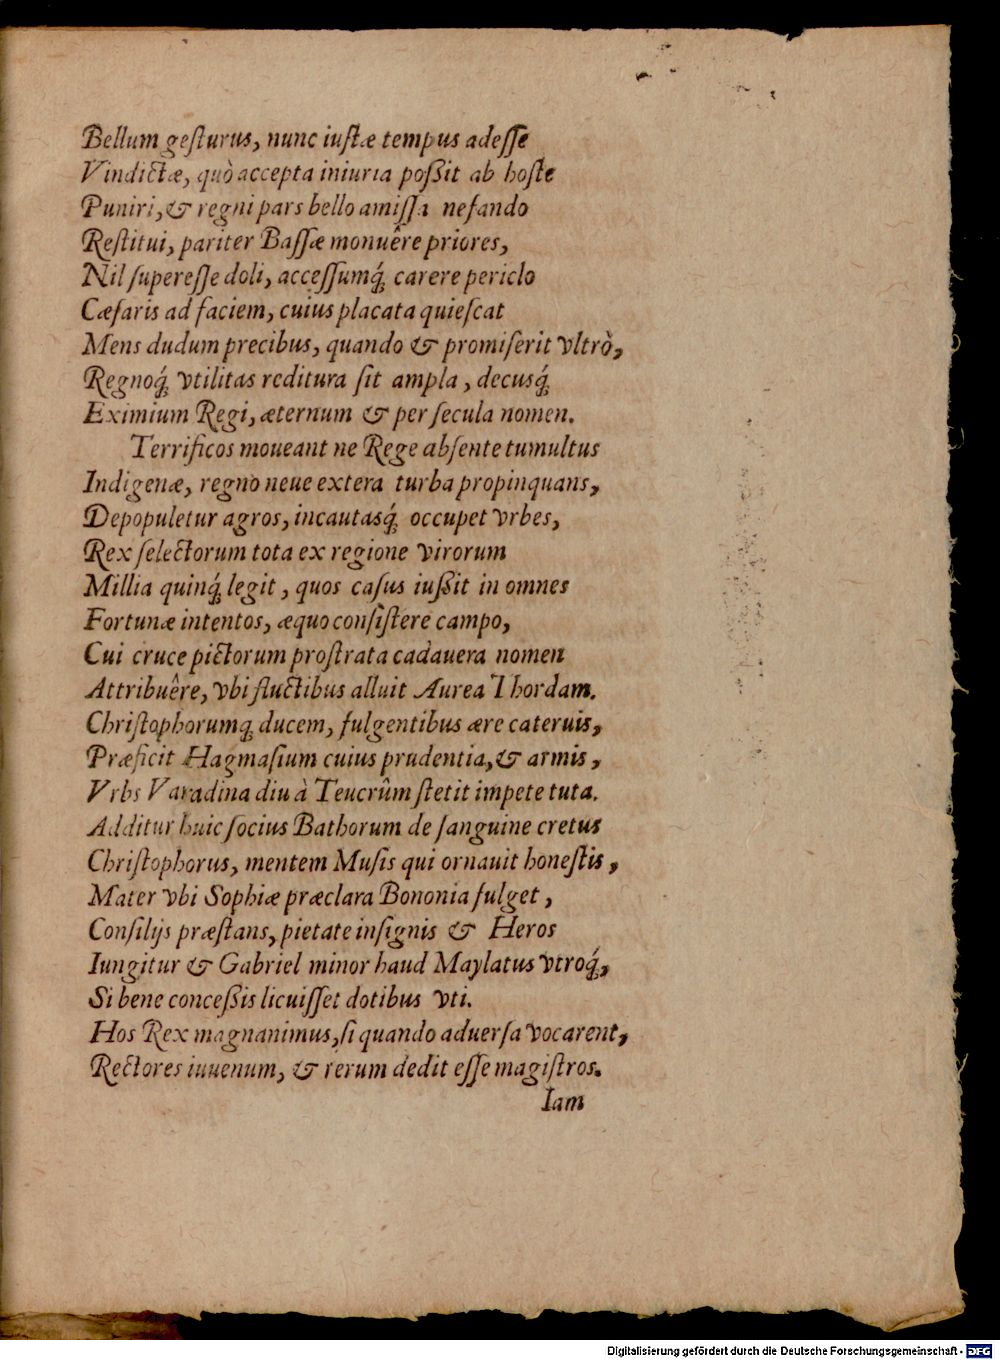 Bellum geſturus, nunc iuſtæ tempus adeſſe
Vindictæ, quò accepta iniuria poßit ab hoſte
Puniri, & regni pars bello amiſſa nefando
Reſtitui, pariter Baſſæ monuêre priores,
Nil ſupereſſe doli, acceſſumq́; carere periclo
Cæſaris ad faciem, cuius placata quieſcat
Mens dudum precibus, quando & promiſerit vltrò,
Regnoq́; vtilitas reditura ſit ampla, decusq́;
Eximium Regi, æternum & per ſecula nomen.
Terrificos moueant ne Rege abſente tumultus
Indigenæ, regno neue extera turba propinquans,
Depopuletur agros, incautasq́; occupet vrbes,
Rex ſelectorum tota ex regione virorum
Millia quinq́; legit, quos caſus iußit in omnes
Fortunæ intentos, æquo conſiſtere campo,
Cui cruce pictorum proſtrata cadauera nomen
Attribuêre, vbi fluctibus alluit Aurea Thordam.
Chriſtophorumq; ducem, fulgentibus ære cateruis,
Præficit Hagmaſium cuius prudentia, & armis,
Vrbs Varadina diu à Teucrûm ſtetit impete tuta.
Additur huic ſocius Bathorum de ſanguine cretus
Chriſtophorus, mentem Muſis qui ornauit honeſtis,
Mater vbi Sophiæ præclara Bononia fulget,
Conſilijs præſtans, pietate inſignis & Heros
Iungitur & Gabriel minor haud Maylatus vtroq́;,
Si bene conceßis licuiſſet dotibus vti.
Hos Rex magnanimus, ſi quando aduerſa vocarent,
Rectores iuuenum, & rerum dedit eſſe magiſtros.
Iam
Digitalisierung gefördert durch die Deutsche Forschungsgemeinschaft - DFG